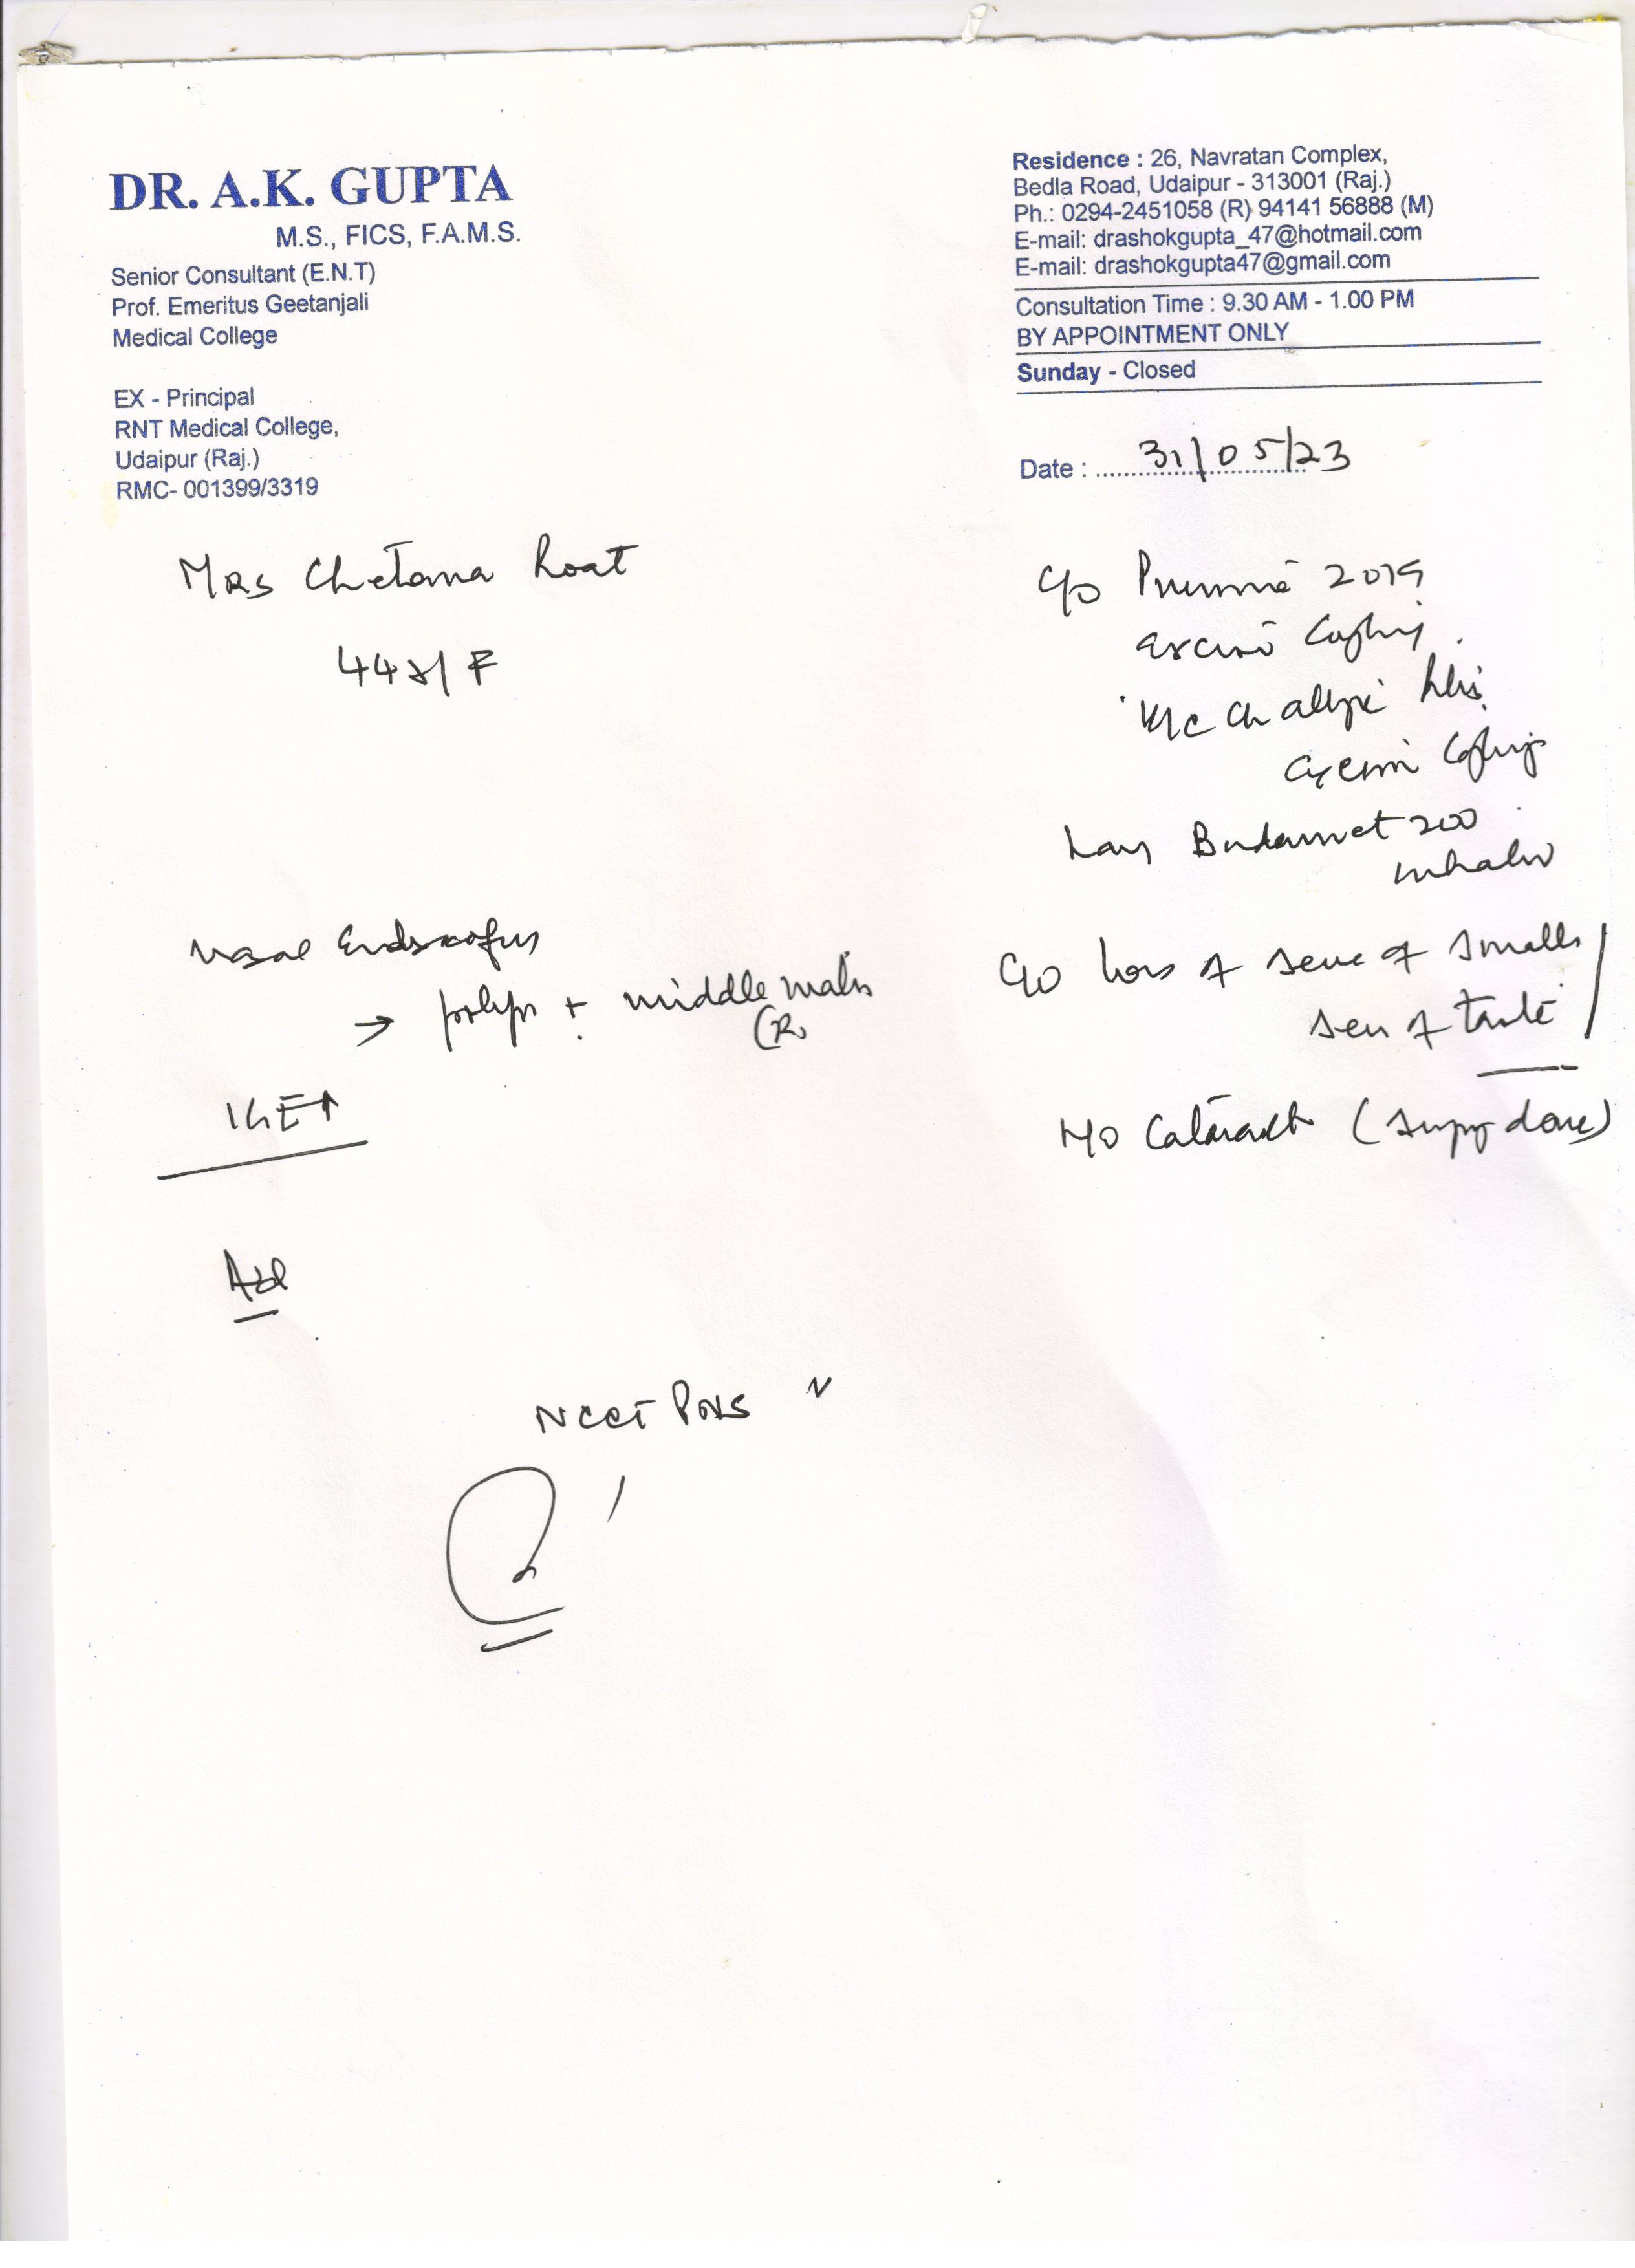 DR. A.K. GUPTA
M.S., FICS, F.A.M.S.
Senior Consultant (E.N.T)
Prof. Emeritus Geetanjali
Medical College
EX - Principal
RNT Medical College,
Udaipur (Raj.)
RMC- 001399/3319
Residence : 26, Navratan Complex,
Bedla Road, Udaipur - 313001 (Raj.)
Ph.: 0294-2451058 (R) 94141 56888 (M)
E-mail: drashokgupta_47@hotmail.com
E-mail: drashokgupta47@gmail.com
Consultation Time : 9.30 AM - 1.00 PM
BY APPOINTMENT ONLY
Sunday - Closed
Date : 31/05/23
Mrs Chetana Roat
44 y/F
c/o 2019
K/c
200
inhaler
Nasal Endoscopy
→ polyp + middle
(R
c/o loss of sense of smell
sense of taste
H/o Cataract (surgery done)
IgE↑
Adv
NCCT PNS